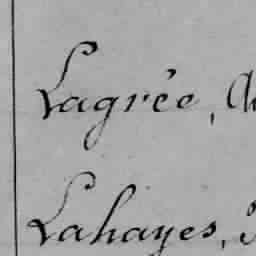 Lagrée,
Lahayes,